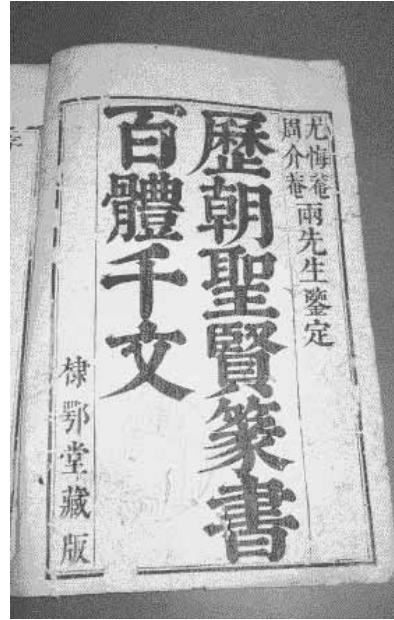 尤悔菴
周介菴兩先生鑒定
歷朝聖賢篆書
百體千文
棣鄂堂藏版